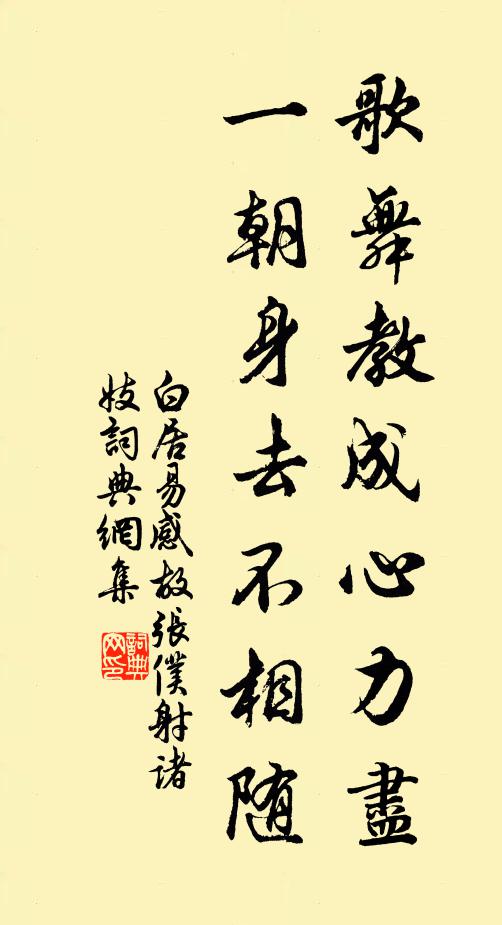 歌舞教成心力盡
一朝身去不相随
白居易感故張僕射諸
妓詞典網集
詞典网印